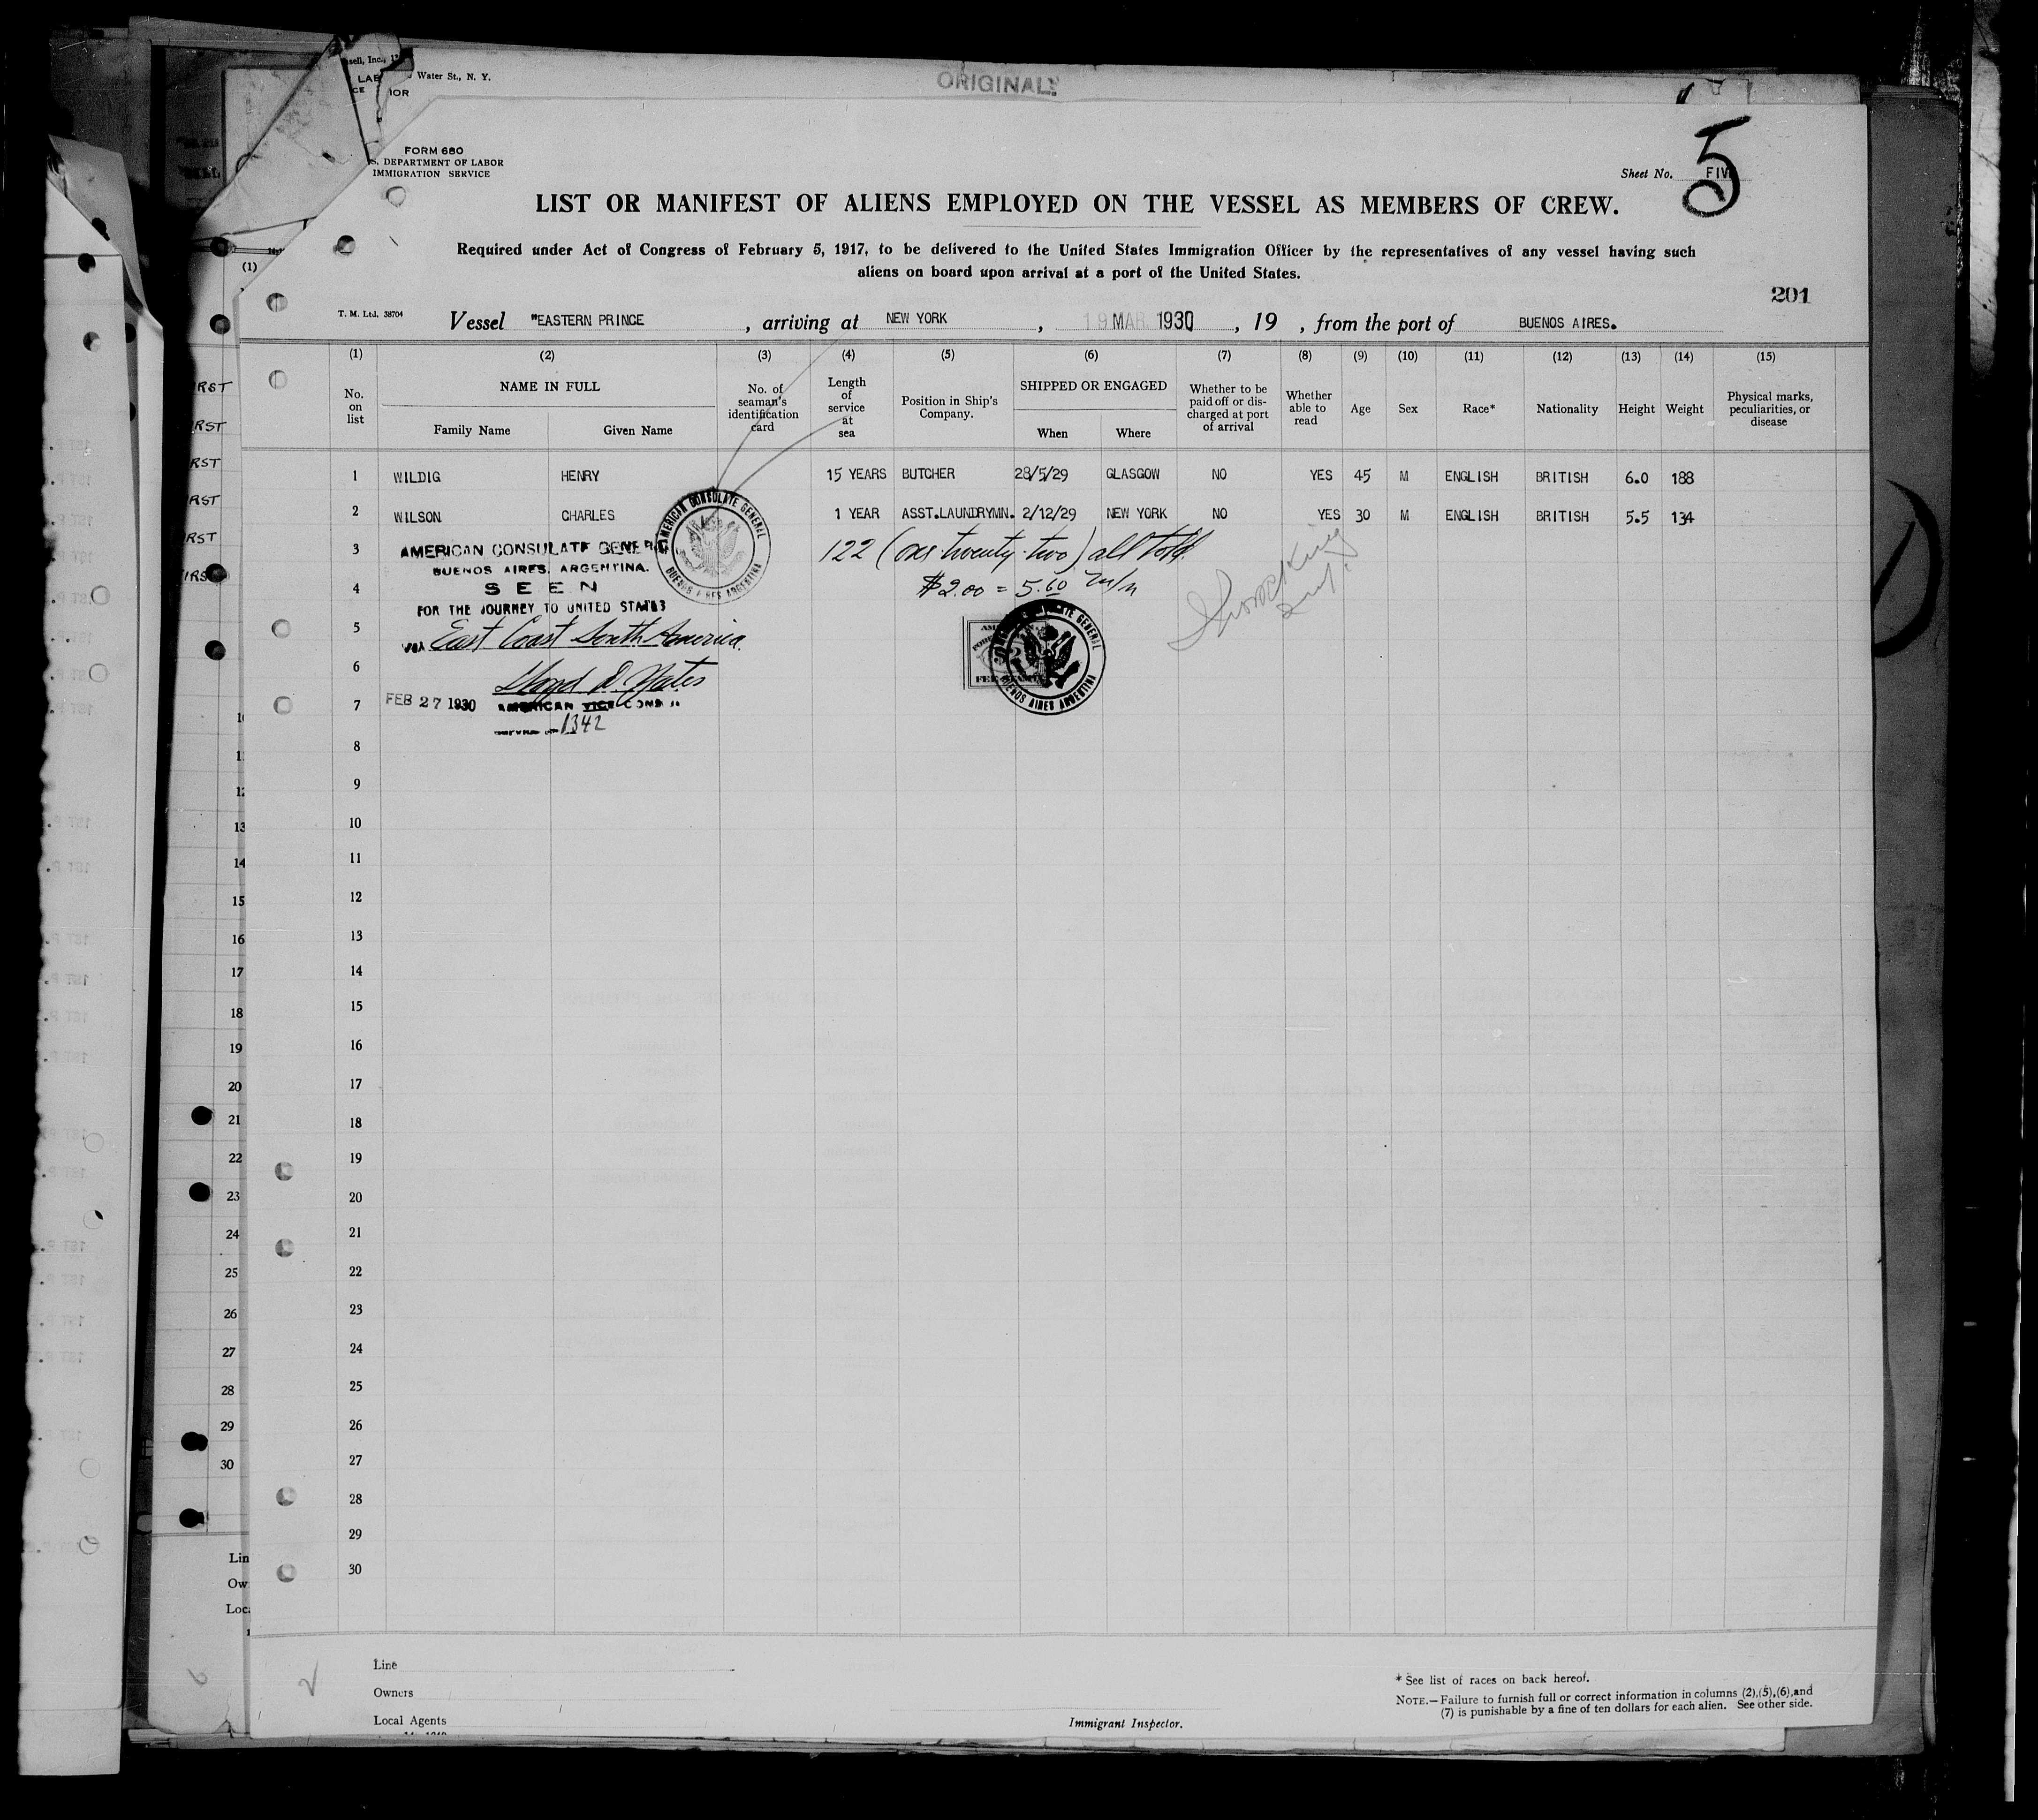 Water St., N. Y.
ORIGINAL
FORM 680
S. DEPARTMENT OF LABOR
IMMIGRATION SERVICE
Sheet No. FIVE
5
LIST OR MANIFEST OF ALIENS EMPLOYED ON THE VESSEL AS MEMBERS OF CREW.
Required under Act of Congress of February 5, 1917, to be delivered to the United States Immigration Officer by the representatives of any vessel having such
aliens on board upon arrival at a port of the United States.
201
T. M. Ltd. 38704
Vessel "EASTERN PRINCE, arriving at NEW YORK, 19 MAR 1930, 19 , from the port of BUENOS AIRES.
(1) (2) (3) (4) (5) (6) (7) (8) (9) (10) (11) (12) (13) (14) (15)
No. on list NAME IN FULL Family Name Given Name No. of seaman's identification card Length of service at sea Position in Ship's Company. SHIPPED OR ENGAGED When Where Whether to be paid off or discharged at port of arrival Whether able to read Age Sex Race* Nationality Height Weight Physical marks, peculiarities, or disease
1 WILDIG HENRY 15 YEARS BUTCHER 28/5/29 GLASGOW NO YES 45 M ENGLISH BRITISH 6.0 188
2 WILSON CHARLES 1 YEAR ASST.LAUNDRYMN. 2/12/29 NEW YORK NO YES 30 M ENGLISH BRITISH 5.5 134
3 AMERICAN CONSULATE GENER 122 (one twenty-two) all told
BUENOS AIRES, ARGENTINA.
4 SEEN $2.00 = 5.60 m/n
FOR THE JOURNEY TO UNITED STATES
5 VIA East Coast South America
6 Lloyd D. Yates
7 FEB 27 1930 AMERICAN VICE CONSUL
1342
AMERICAN CONSULATE GENERAL
BUENOS AIRES ARGENTINA
FEE STAMP
BUENOS AIRES ARGENTINA
8
9
10
11
12
13
14
15
16
17
18
19
20
21
22
23
24
25
26
27
28
29
30
Line
Owners
Local Agents
Immigrant Inspector.
* See list of races on back hereof.
NOTE.—Failure to furnish full or correct information in columns (2),(5),(6),and
(7) is punishable by a fine of ten dollars for each alien. See other side.